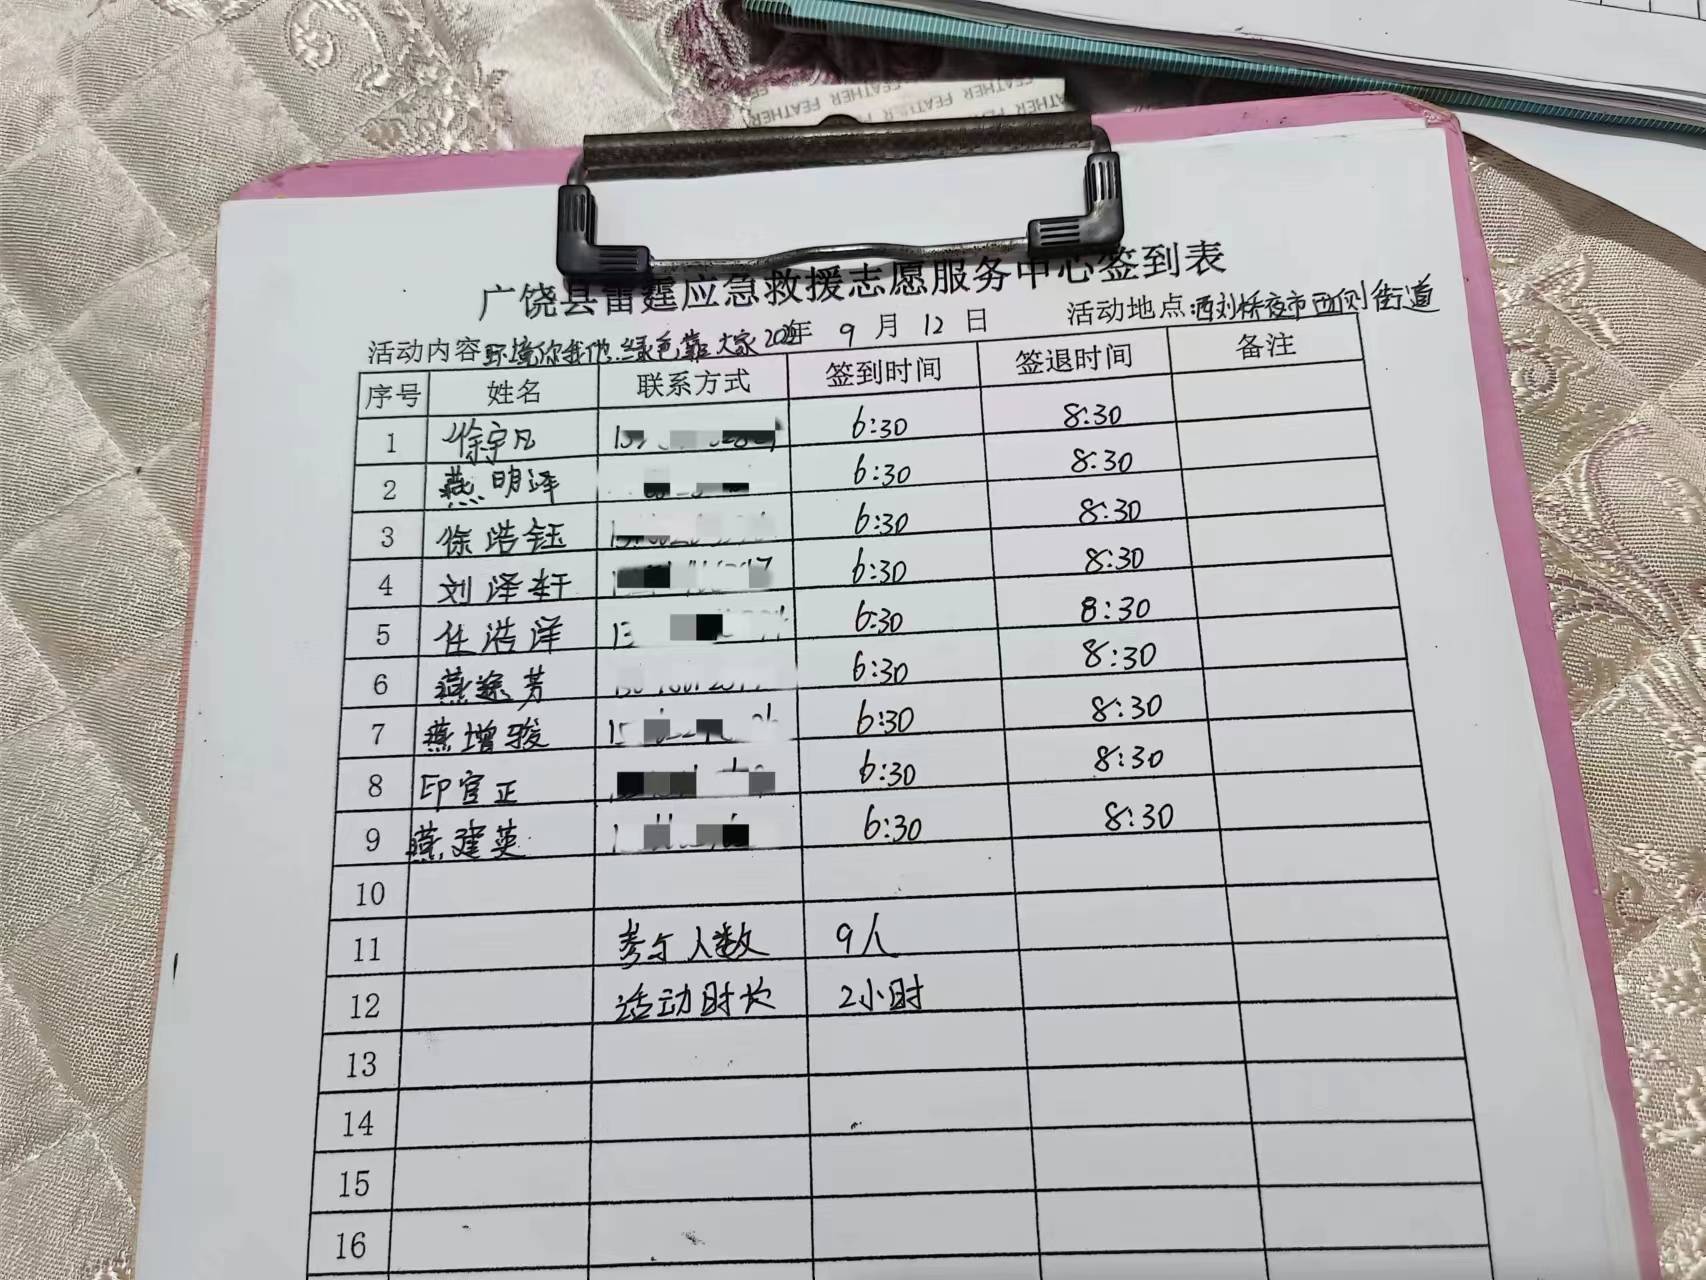 FEATHER FEATHER FEATHER
广饶县雷霆应急救援志愿服务中心签到表
活动内容 环境你我他.绿色靠大家 年 9 月 12 日 活动地点:西刘桥夜市西侧街道
序号 姓名 联系方式 签到时间 签退时间 备注
1 徐宇凡 6:30 8:30
2 燕明泽 6:30 8:30
3 徐浩钰 6:30 8:30
4 刘泽轩 6:30 8:30
5 任浩泽 6:30 8:30
6 燕 芳 6:30 8:30
7 燕增骏 6:30 8:30
8 印官正 6:30 8:30
9 燕建英 6:30 8:30
10
11 参与人数 9人
12 活动时长 2小时
13
14
15
16